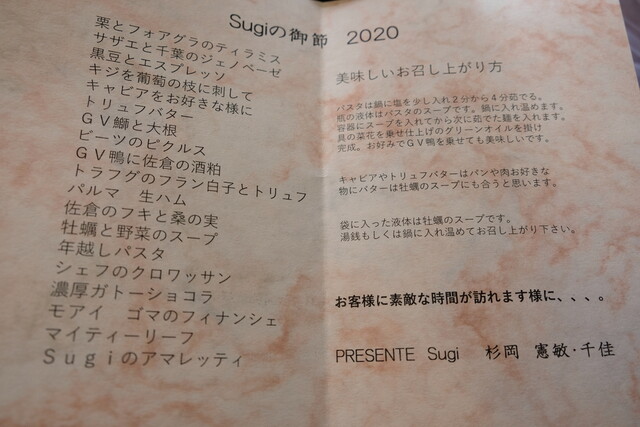 Sugiの御節　2020
栗とフォアグラのティラミス
サザエと千葉のジェノベーゼ
黒豆とエスプレッソ
キジを葡萄の枝に刺して
キャビアをお好きな様に
トリュフバター
ＧＶ鰤と大根
ビーツのピクルス
ＧＶ鴨に佐倉の酒粕
トラフグのフラン白子とトリュフ
パルマ　生ハム
佐倉のフキと桑の実
牡蠣と野菜のスープ
年越しパスタ
シェフのクロワッサン
濃厚ガトーショコラ
モアイ　ゴマのフィナンシェ
マイティーリーフ
Ｓｕｇｉのアマレッティ
美味しいお召し上がり方
パスタは鍋に塩を少し入れ２分から４分茹でる。
瓶の液体はパスタのスープです。鍋に入れ温めます。
容器にスープを入れてから次に茹でた麺を入れます。
具の菜花を乗せ仕上げのグリーンオイルを掛け
完成。お好みでＧＶ鴨を乗せても美味しいです。
キャビアやトリュフバターはパンや肉お好きな
物にバターは牡蠣のスープにも合うと思います。
袋に入った液体は牡蠣のスープです。
湯銭もしくは鍋に入れ温めてお召し上がり下さい。
お客様に素敵な時間が訪れます様に、、、、。
PRESENTE　Sugi　杉岡　憲敏・千佳